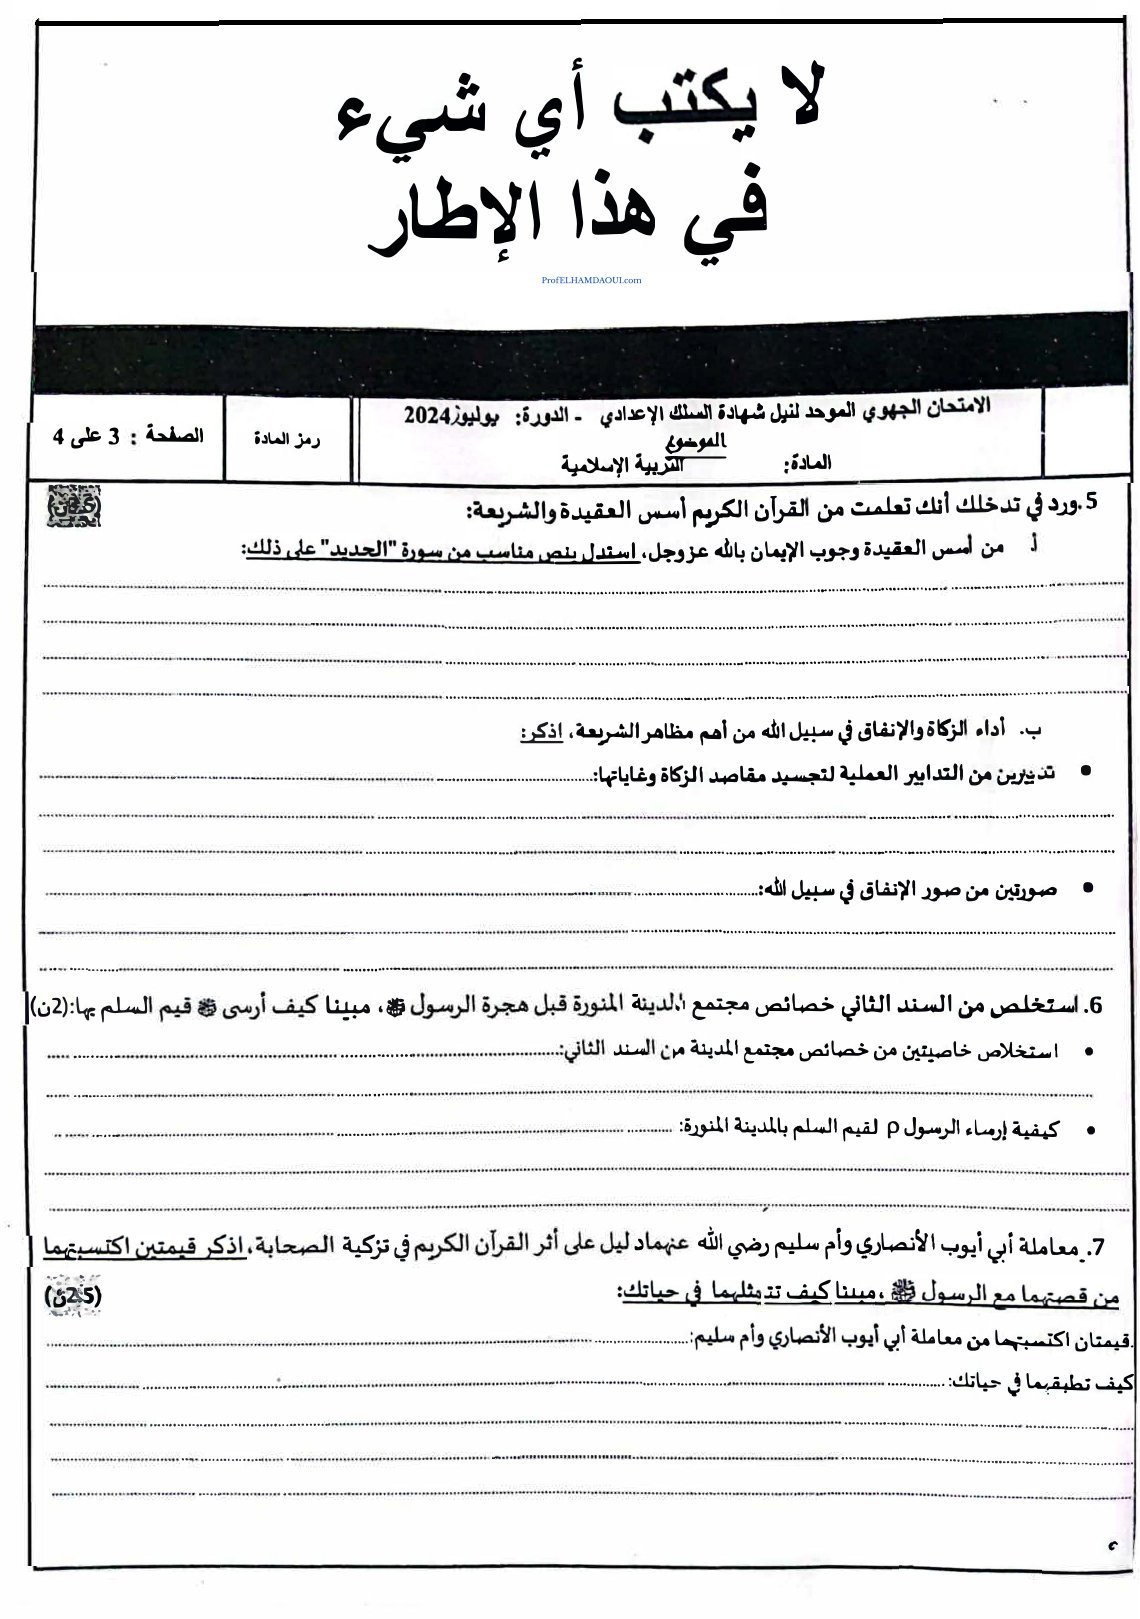 لا يكتب أي شيء
في هذا الإطار
ProfELHAMDAOUI.com
الامتحان الجهوي الموحد لنيل شهادة السلك الإعدادي - الدورة: يوليوز2024
الموضوع
المادة: التربية الإسلامية
رمز المادة
الصفحة : 3 على 4
5.ورد في تدخلك أنك تعلمت من القرآن الكريم أسس العقيدة والشريعة:
أ. من أسس العقيدة وجوب الإيمان بالله عزوجل، استدل بنص مناسب من سورة "الحديد" على ذلك:
ب. أداء الزكاة والإنفاق في سبيل الله من أهم مظاهر الشريعة، اذكر:
• تدبيرين من التدابير العملية لتجسيد مقاصد الزكاة وغاياتها:
• صورتين من صور الإنفاق في سبيل الله:
6. استخلص من السند الثاني خصائص مجتمع المدينة المنورة قبل هجرة الرسول ﷺ، مبينا كيف أرسى ﷺ قيم السلم بها:(2ن)
• استخلاص خاصيتين من خصائص مجتمع المدينة من السند الثاني:
• كيفية إرساء الرسول ρ لقيم السلم بالمدينة المنورة:
7. معاملة أبي أيوب الأنصاري وأم سليم رضي الله عنهماد ليل على أثر القرآن الكريم في تزكية الصحابة، اذكر قيمتين اكتسبتهما
من قصتهما مع الرسول ﷺ ،مبينا كيف تتمثلهما في حياتك:
(2.5ن)
.قيمتان اكتسبتهما من معاملة أبي أيوب الأنصاري وأم سليم:
كيف تطبقهما في حياتك: